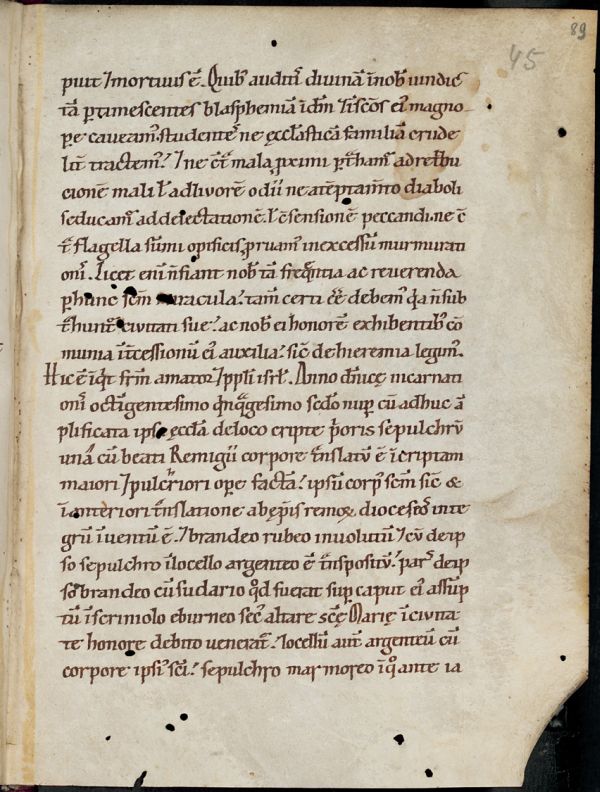 89
45
puit ⁊ mortuus ē. Quib; auditis divinā in nob̄ iundic
tā ꝑtimescentes blasphemiā in dm̄ ⁊ scōs eiꝰ magno
pe caveamꝰ. studentes ne ęccl̄asticā familiā crude
lit̄ tractemꝰ. ⁊ ne mala proximi ad retribu
cionē mali ł ad livorē odii ne diaboli
seducamꝰ ad delectationē ł sensionē peccandi. ne
flagella sūmi opificis ꝓruamꝰ in excessū murmurati
onis. Licet eni n̄ fiant nob̄ tā freq̄ntia ac reverenda
ꝑ hunc scm̄ miracula. tam̄ certi eē debemꝰ
civitati sue. ac nob̄ ei honorē exhibentib; cō
munia int̄cessionū eiꝰ auxilia. sic̄ de hieremia legimꝰ.
Hic ē inq̄t fr̄m amator ⁊ ppl̄i isrł. Anno dn̄icę incarnati
onis octingentesimo nup cū adhuc ā
plificata ipsa ęccl̄a de loco cripte prioris sepulchrū
unā cū beati Remigii corpore trānslatū ē in criptam
maiori ⁊ pulcriori opere factā. ipsū corpꝰ scm̄ sic̄ &
in anteriori trānslatione ab ep̄is remoꝝ dioceseos inte
grū inventū ē. ⁊ brandeo rubeo involutū ⁊ cū de ip
so sepulchro in locello argenteo ē trānspositū. pars de ip
so brandeo cū sudario qd̄ fuerat sup caput eiꝰ assūp
tū in scriniolo eburneo secꝰ altare scę Marię in civita
te honore debito venerat̄. locellū aut̄ argenteū cū
corpore ipsiꝰ sci. sepulchro marmoreo in q̊ ante ia